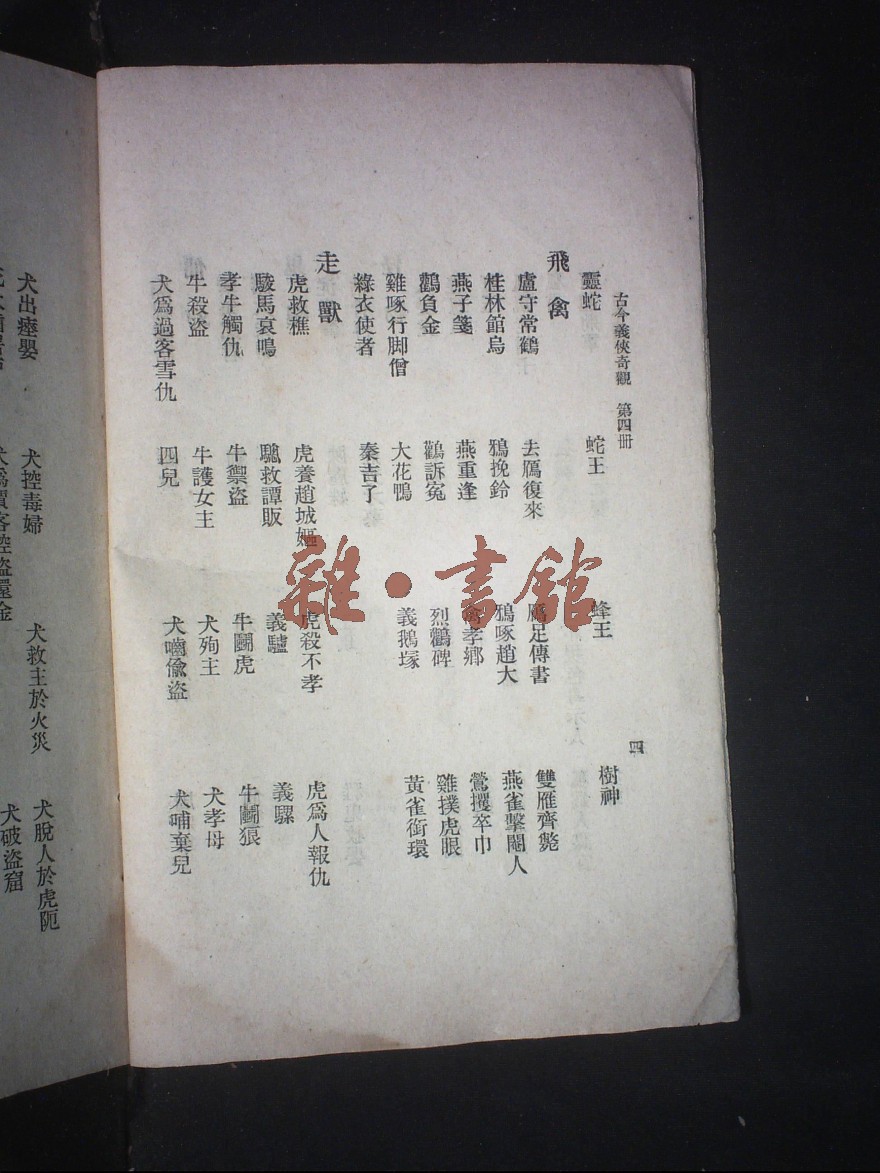 古今義俠奇觀　第四册　四
靈蛇　蛇王　蜂王　樹神
飛禽
盧守常鶴　去鴈復來　鴈足傳書　雙雁齊斃
桂林館烏　鴉挽鈴　鴉啄趙大　燕雀擊閽人
燕子箋　燕重逢　孝鄉　鶯攫卒巾
鸛負金　鸛訴冤　烈鸛碑　雞撲虎眼
雞啄行脚僧　大花鴨　義鵝塚　黃雀銜環
綠衣使者　秦吉了
走獸
虎救樵　虎養趙城嫗　虎殺不孝　虎爲人報仇
駿馬哀鳴　驢救譚販　義驢　義騾
孝牛觸仇　牛禦盜　牛鬭虎　牛鬭狼
牛殺盜　牛護女主　犬殉主　犬孝母
犬爲過客雪仇　四兒　犬嚙偸盜　犬哺棄兒
犬出瘞嬰　犬控毒婦　犬救主於火災　犬脫人於虎阨
犬爲賈客控盜還金　犬破盜窟
雜·書館